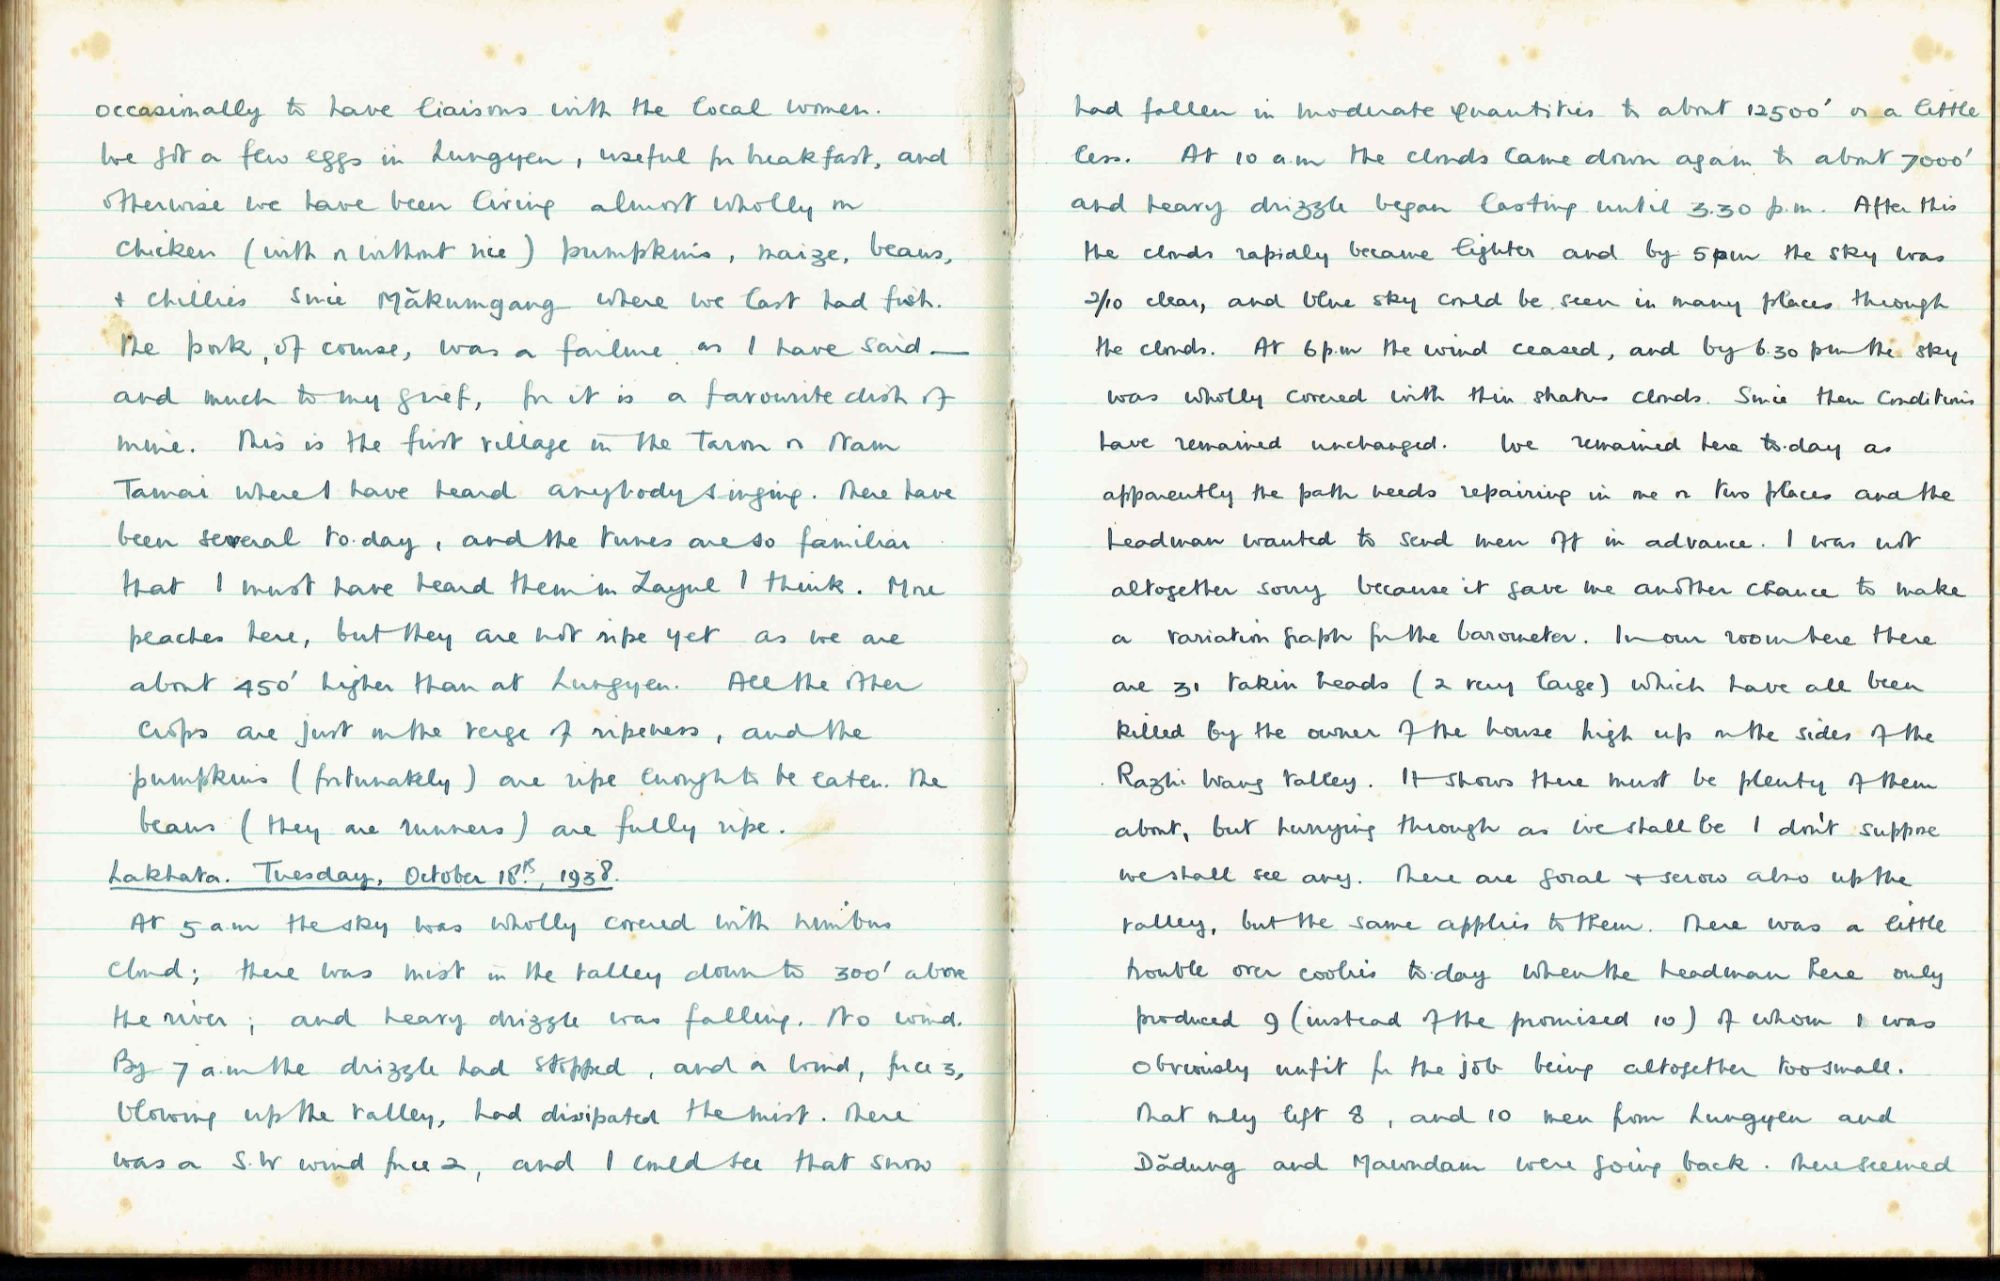 occasionally to have liaisons with the local women.
We got a few eggs in Lungyen, useful for breakfast, and
otherwise we have been living almost wholly on
chicken (with or without rice) pumpkins, maize, beans,
+ chillies since Mākumgang where we last had fish.
The pork, of course, was a failure as I have said —
and much to my grief, for it is a favourite dish of
mine. This is the first village in the Taron or Nam
Tamai where I have heard anybody singing. There have
been several to-day, and the tunes are so familiar
that I must have heard them in Zayul I think. More
peaches here, but they are not ripe yet as we are
about 450' higher than at Lungyen. All the other
crops are just on the verge of ripeness, and the
pumpkins (fortunately) are ripe enough to be eaten. The
beans (they are runners) are fully ripe.
Lakhata. Tuesday, October 18th, 1938.
At 5 a.m the sky was wholly covered with nimbus
cloud; there was mist in the valley down to 300' above
the river; and heavy drizzle was falling. No wind.
By 7 a.m the drizzle had stopped, and a wind, force 3,
blowing up the valley, had dissipated the mist. There
was a S.W wind force 2, and I could see that snow
had fallen in moderate quantities to about 12500' or a little
less. At 10 a.m the clouds came down again to about 7000'
and heavy drizzle began lasting until 3.30 p.m. After this
the clouds rapidly became lighter and by 5 pm the sky was
2/10 clear, and blue sky could be seen in many places through
the clouds. At 6 p.m the wind ceased, and by 6.30 pm the sky
was wholly covered with thin stratus clouds. Since then conditions
have remained unchanged. We remained here to-day as
apparently the path needs repairing in one or two places and the
headman wanted to send men off in advance. I was not
altogether sorry because it gave me another chance to make
a variation graph for the barometer. In our room here there
are 31 takin heads (2 very large) which have all been
killed by the owner of the house high up on the sides of the
Razhi Wang valley. It shows there must be plenty of them
about, but hurrying through as we shall be I don't suppose
we shall see any. There are goral + serow also up the
valley, but the same applies to them. There was a little
trouble over coolies to-day when the headman here only
produced 9 (instead of the promised 10) of whom 1 was
obviously unfit for the job being altogether too small.
That only left 8, and 10 men from Lungyen and
Dādung and Mawndam were going back. There seemed